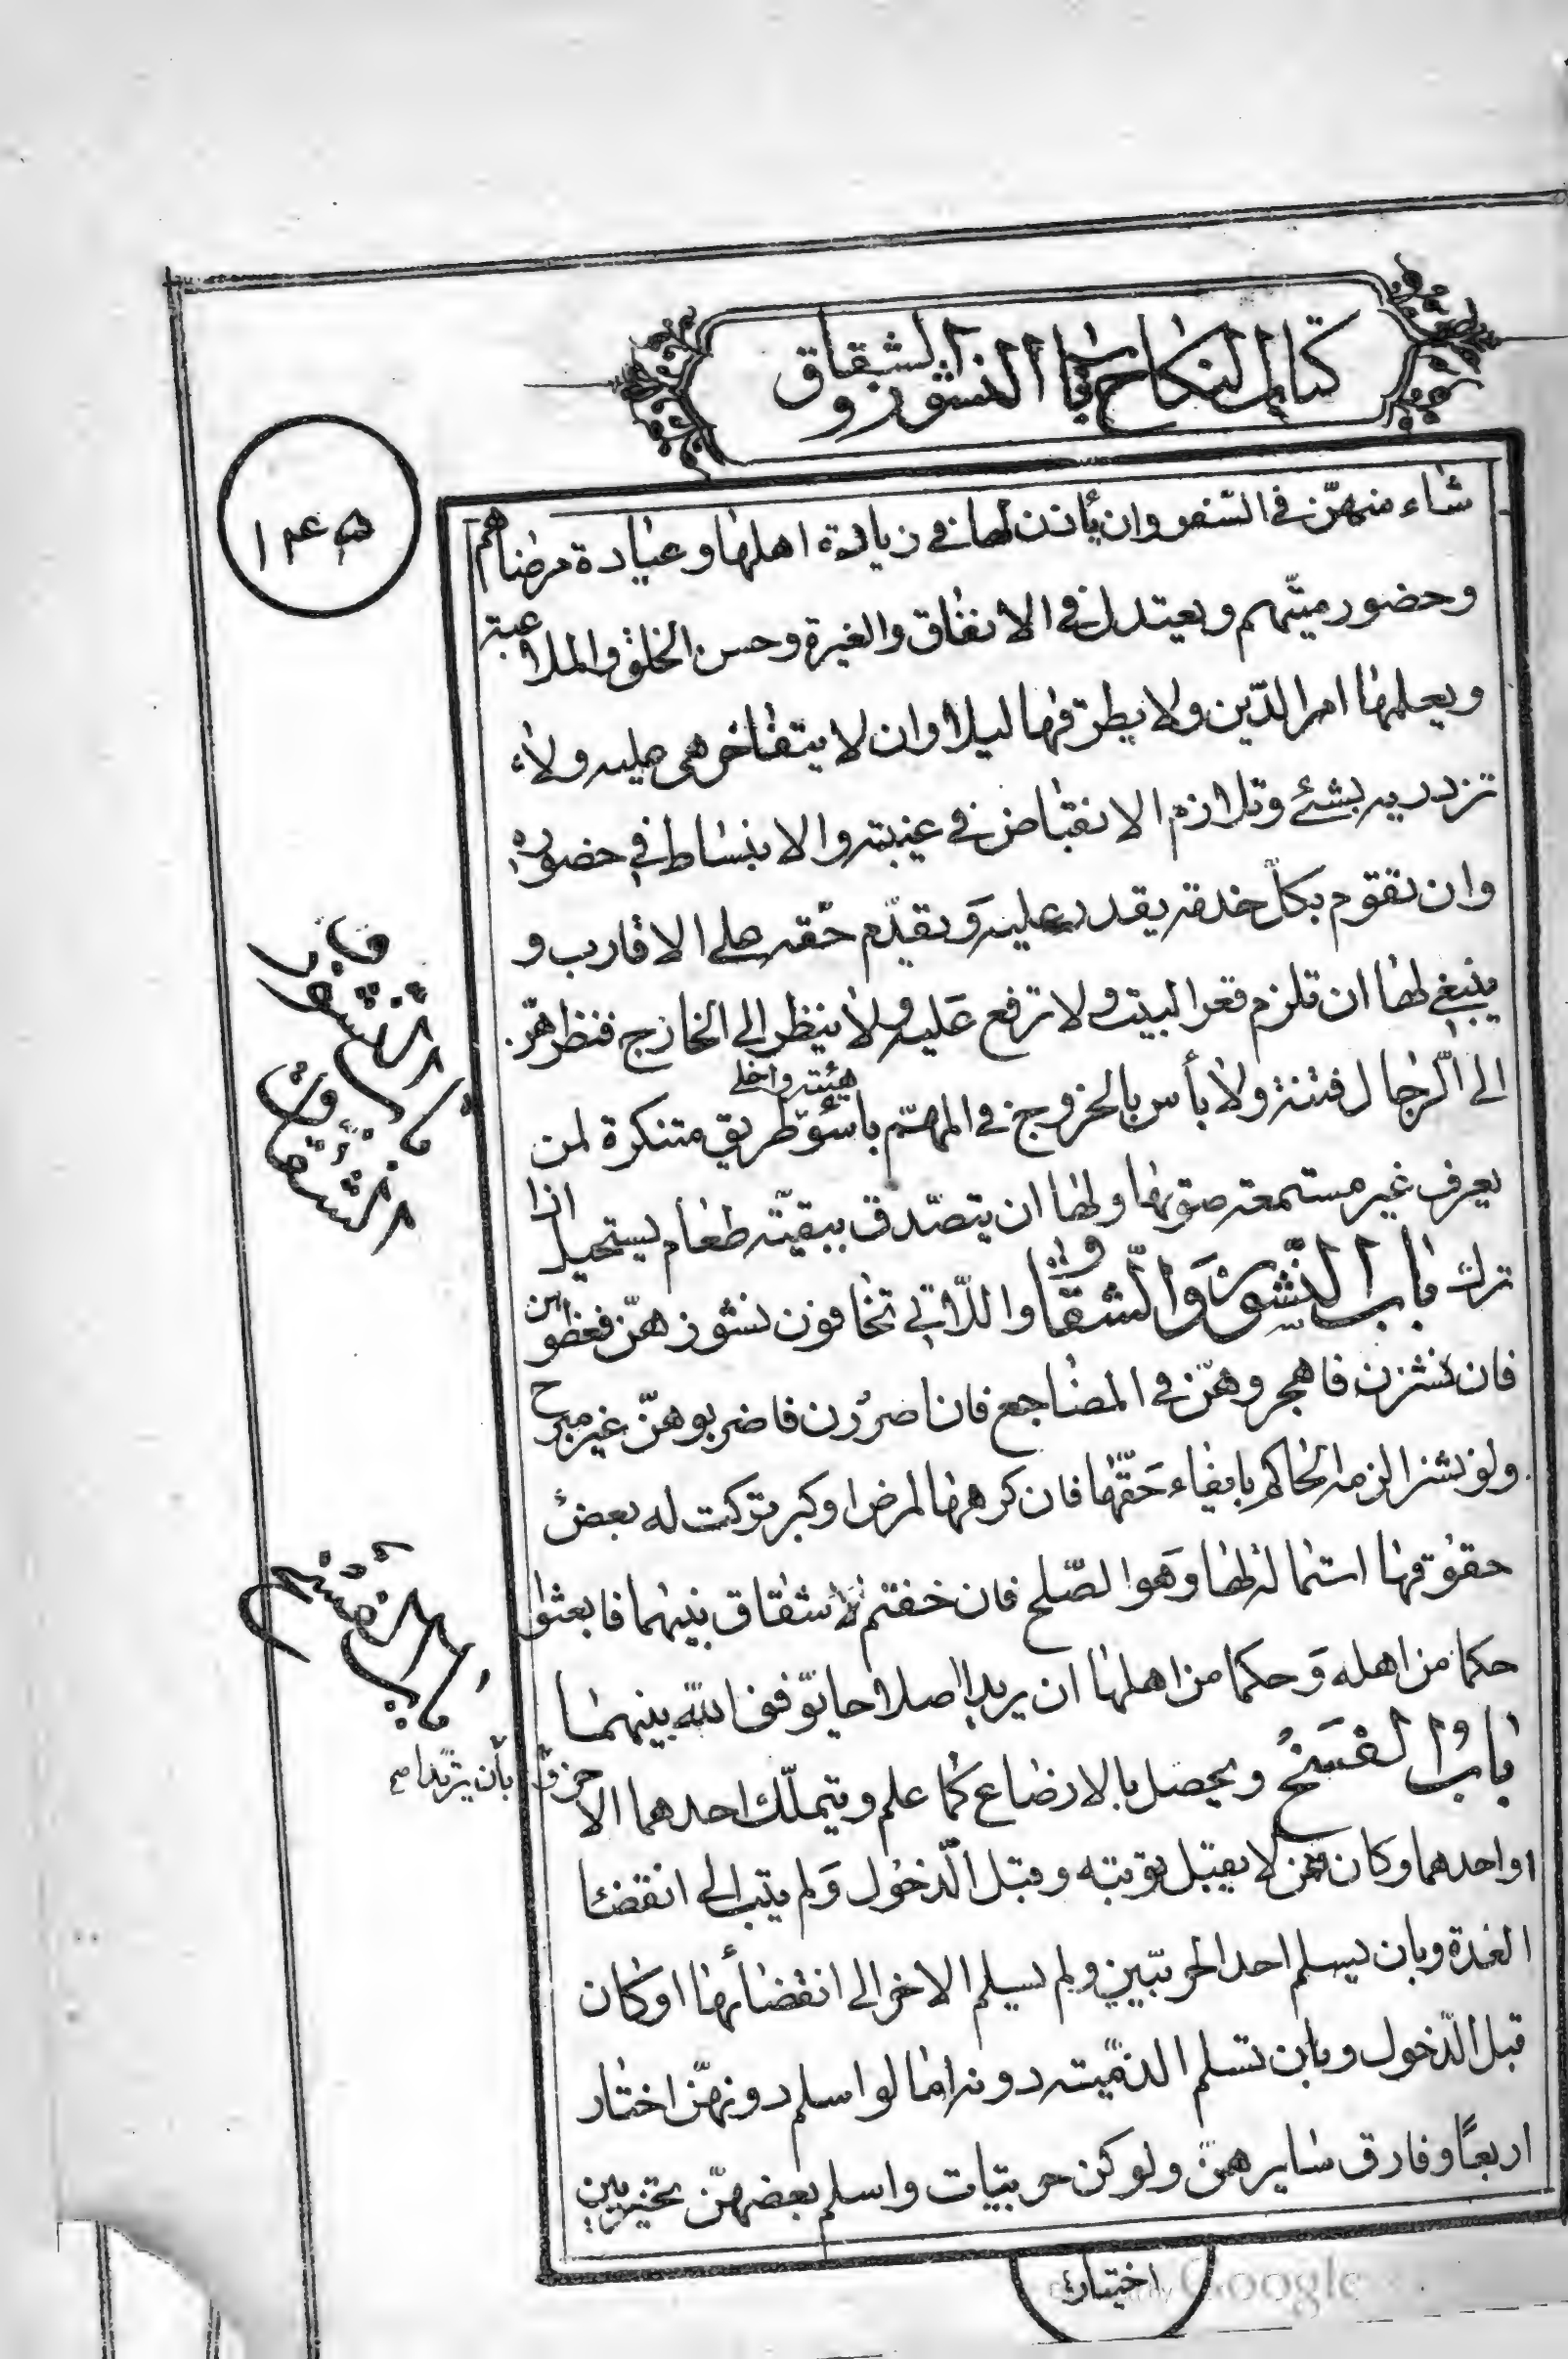 كتاب النكاح باب النشوز والشقاق
١٤٥
شاء منهنّ في السّفر وان يأذن لها في زيارة اهلها وعيادة مرضاهم
وحضور ميّتهم ويعتدل في الانفاق والغيرة وحسن الخلق والملاعبة
ويعلمها امر الدّين ولا يطرقها ليلا وان لا يتفاخر هي عليه ولا
تزدريه بشئ وتلازم الانقباض في غيبته والانبساط في حضوره
وان تقوم بكلّ خدمة يقدر عليه وَتقدّم حقّه على الاقارب و
ينبغي لها ان تلزم قعر البيت ولا ترفع عَليه ولا ينظر الى الخارج فنظرهنّ
الى الرّجال فتنة ولا بأس بالخروج في المهمّ باسوء طريق متنكرة لمن
هيئته واخلى
يعرف غير مستمعة صوتها ولها ان يتصّدق ببقيّة طعام يستحيل اذا
ترك باب النّشوز وَالشّقاق واللاّتي تخافون نشوزهنّ فعظوهن
فان نشزن فاهجروهنّ في المضاجع فان اصررن فاضربوهنّ غير مبرح
ولو نشز الزمه الحاكم بايفاء حَقّها فان كرهها لمرض او كبر تركت له بعض
حقوقها استمالة لها وَهو الصّلح فان خفتم شقاق بينهما فابعثوا
حكما من اهله وَحكما من اهلها ان يريدا اصلاحا يوّفق الله بينهما
بابُ الفسَخُ ويحصل بالارضاع كما علم ويتملّك احدهما الاخر
بأن يرتدا صح
او احدهما وكان ممّن لا يقبل توبته وقبل الدّخول وَلم يتب الى انقضا
العدة وبان يسلم احد الحربيّين ولم يسلم الاخر الى انقضائها او كان
قبل الدّخول وبان تسلم الذمّيته دونه امّا لو اسلم دونهنّ اختار
اربعًا وفارق سايرهنّ ولو كن حربيّات واسلم بعضهنّ تخير بين
اختيار
باب النشوز والشقاق
باب الفسخ
Google